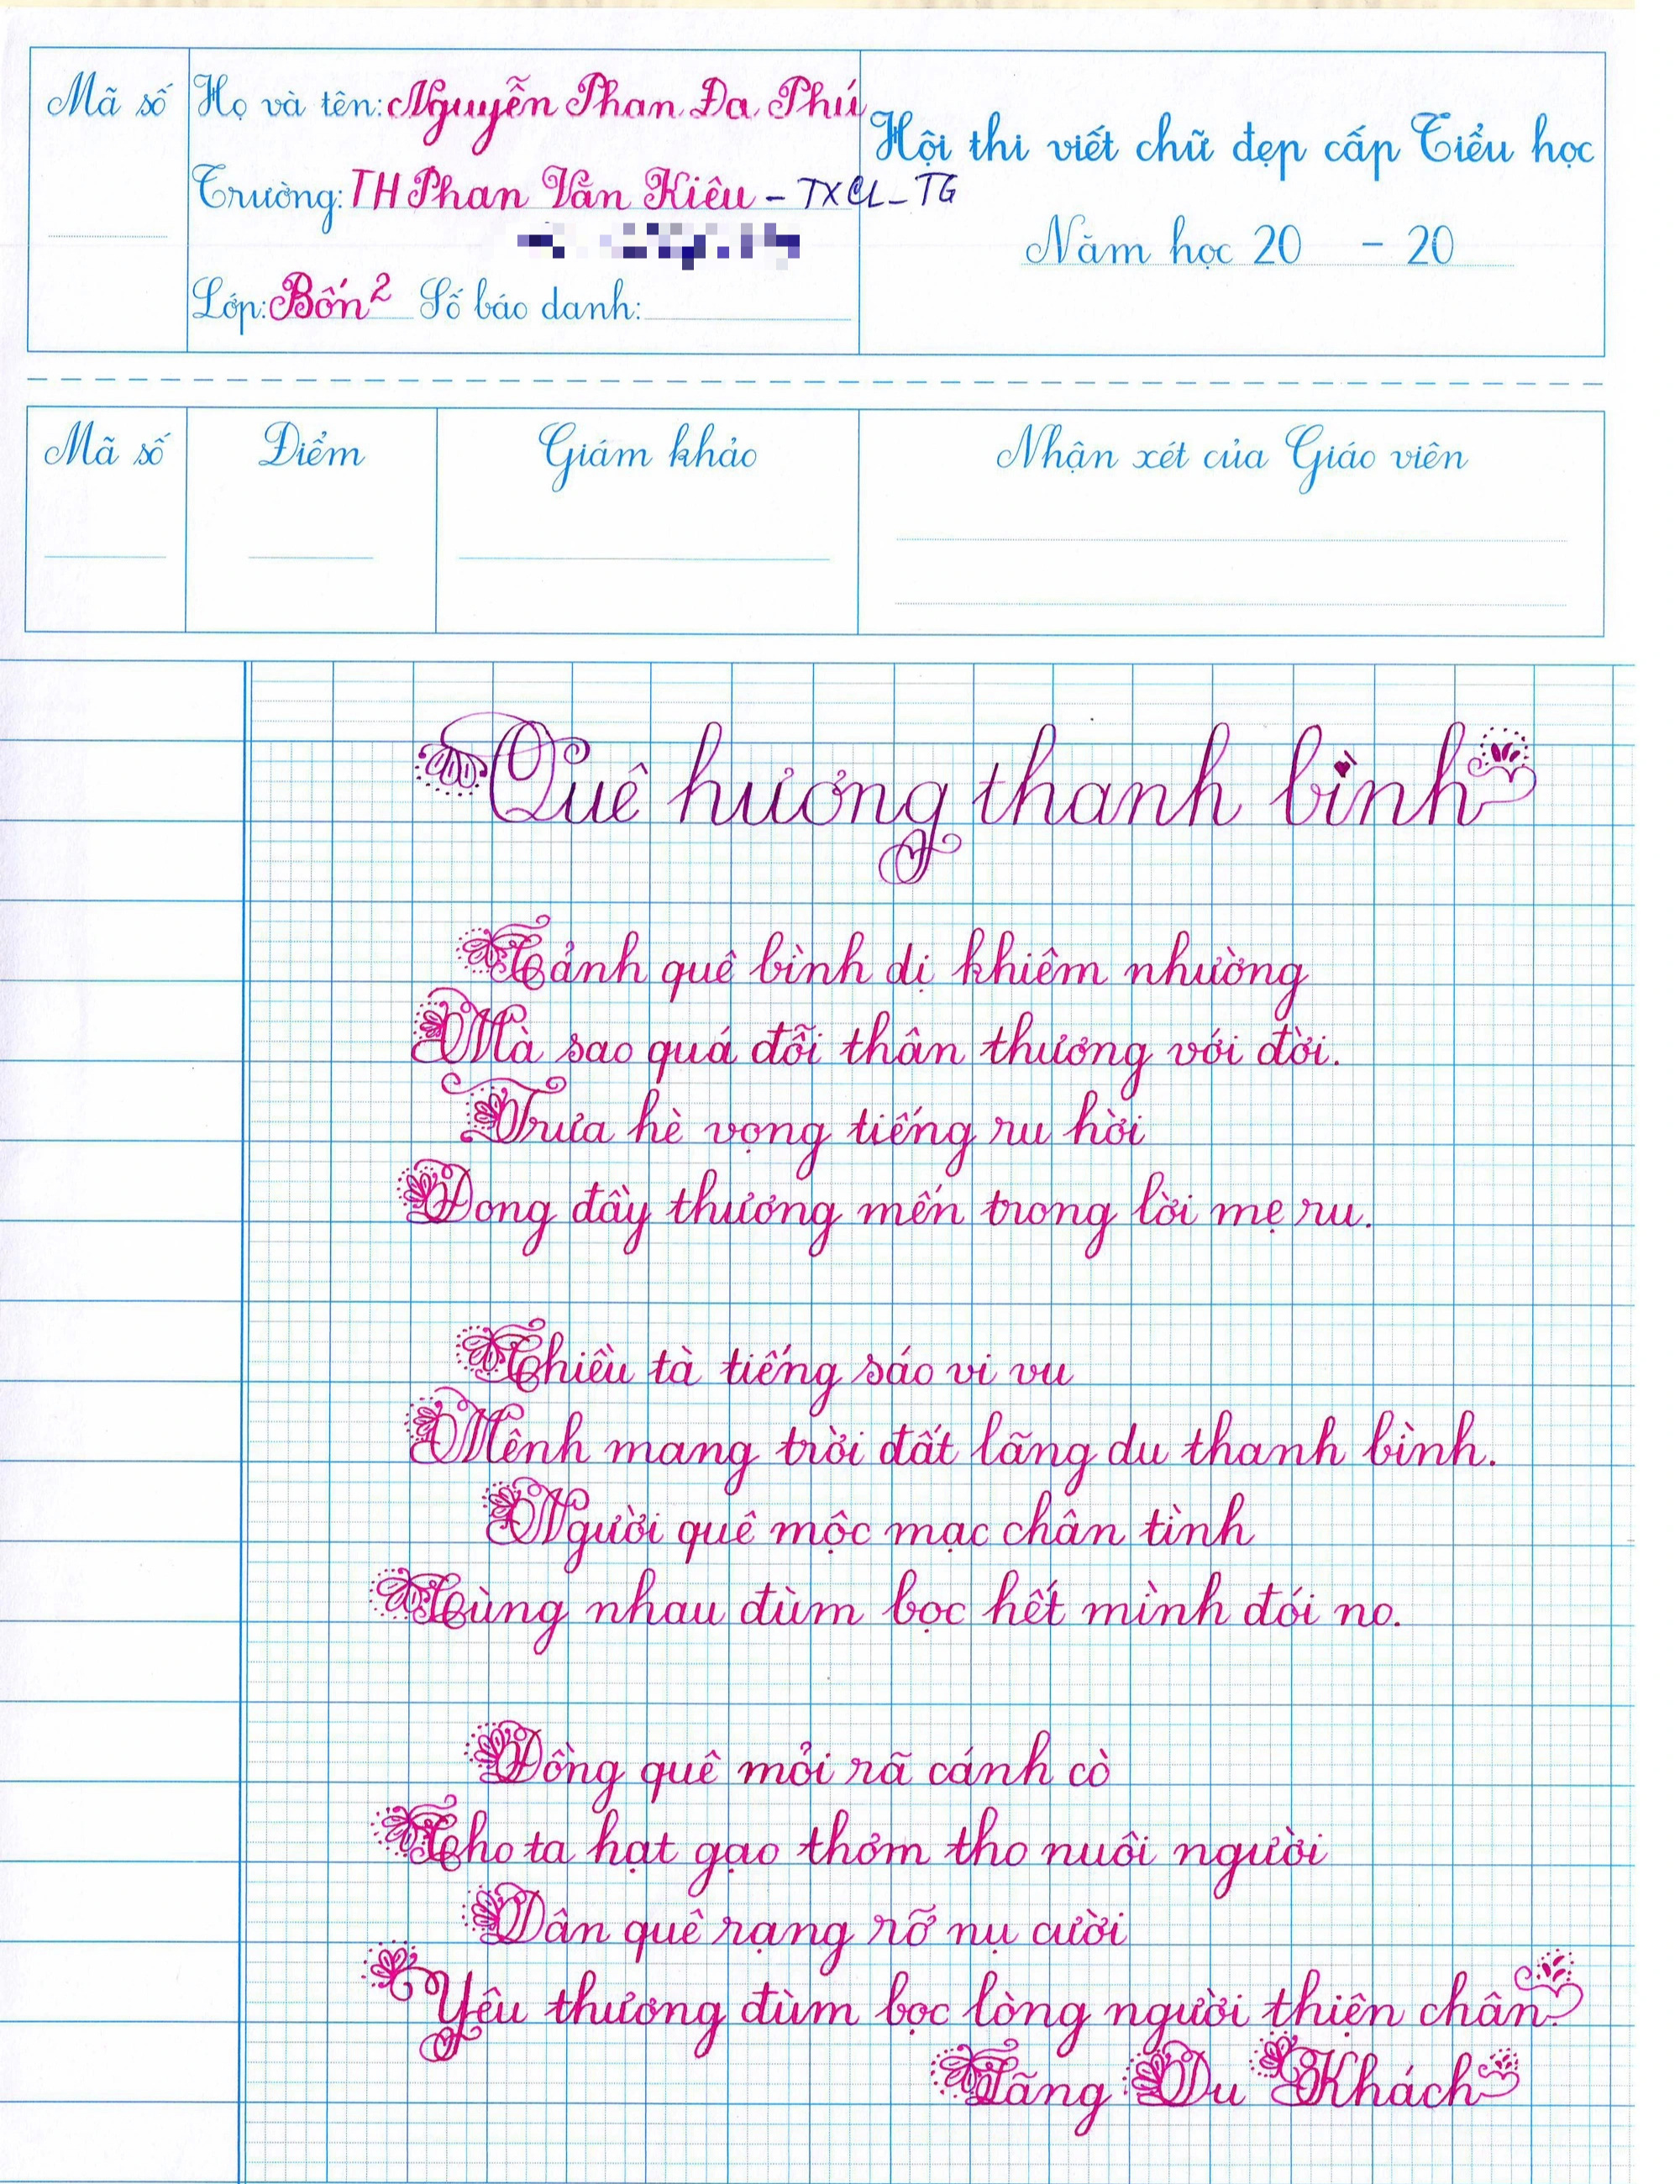 Mã số
Họ và tên: Nguyễn Phan Đa Phú
Trường: TH Phan Văn Kiêu - TXCL - TG
Lớp: Bốn 2 Số báo danh:
Hội thi viết chữ đẹp cấp Tiểu học
Năm học 20 - 20
Mã số
Điểm
Giám khảo
Nhận xét của Giáo viên
Quê hương thanh bình
Cảnh quê bình dị khiêm nhường
Mà sao quá đỗi thân thương với đời.
Trưa hè vọng tiếng ru hời
Dong đầy thương mến trong lời mẹ ru.
Chiều tà tiếng sáo vi vu
Mênh mang trời đất lãng du thanh bình.
Người quê mộc mạc chân tình
Cùng nhau đùm bọc hết mình đói no.
Đồng quê mỏi rã cánh cò
Cho ta hạt gạo thơm tho nuôi người
Dân quê rạng rỡ nụ cười
Yêu thương đùm bọc lòng người thiện chân.
Lãng Du Khách